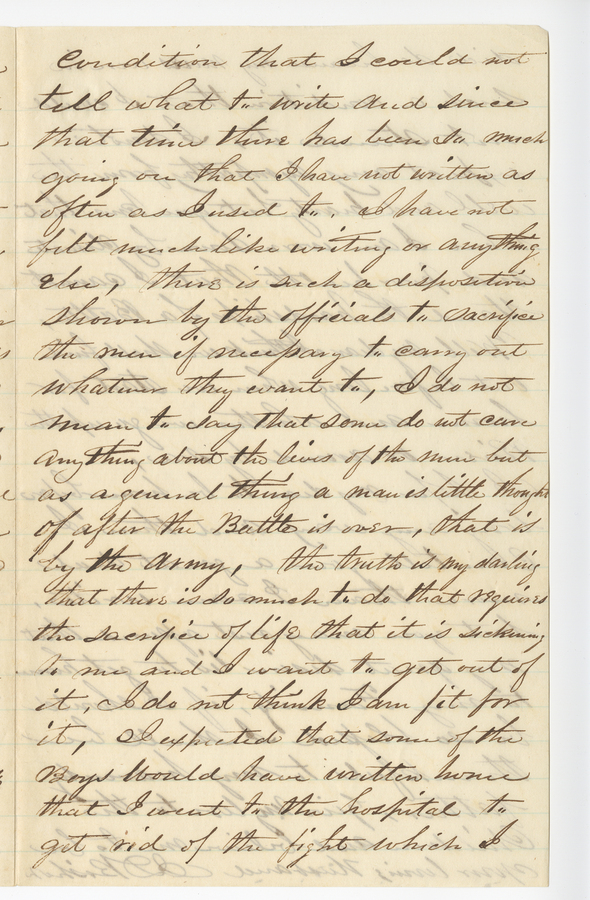 condition that I could not
tell what to write and since
that time there has been so much
going on that I have not written as
often as I used to. I have not
felt much like writing or anything
else, there is such a disposition
shown by the officials to sacrifice
the men if necessary to carry out
whatever they want to, I do not
mean to say that some do not care
anything about the lives of the men but
as a general thing a man is little thought
of after the Battle is over, that is
by the Army, the truth is my darling
that there is so much to do that requires
the sacrifice of life that it is sickening
to me and I want to get out of
it, I do not think I am fit for
it, I expected that some of the
Boys Would have written home
that I went to the hospital to
get rid of the fight which I